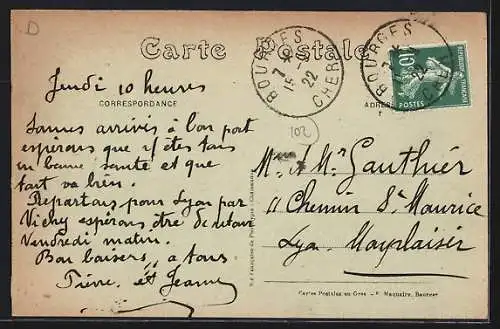 D
Carte Postale
BOURGES
7 * 15 - 22
CHER
BOURGES
CHER
10c
POSTES
REPUBLIQUE FRANÇAISE
CORRESPONDANCE
ADRESSE
102
Jeudi 10 heures
Sommes arrivés à bon port
espérons que v/ êtes tous
en bonne santé et que
tout va bien.
Repartons pour Lyon par
Vichy espérons être de retour
Vendredi matin.
Bon baisers à tous
Pierre et Jeanne
M. & Mme Gauthier
11 Chemin St Maurice
Lyon Monplaisir
Cartes Postales en Gros - Maquaire, Bourges